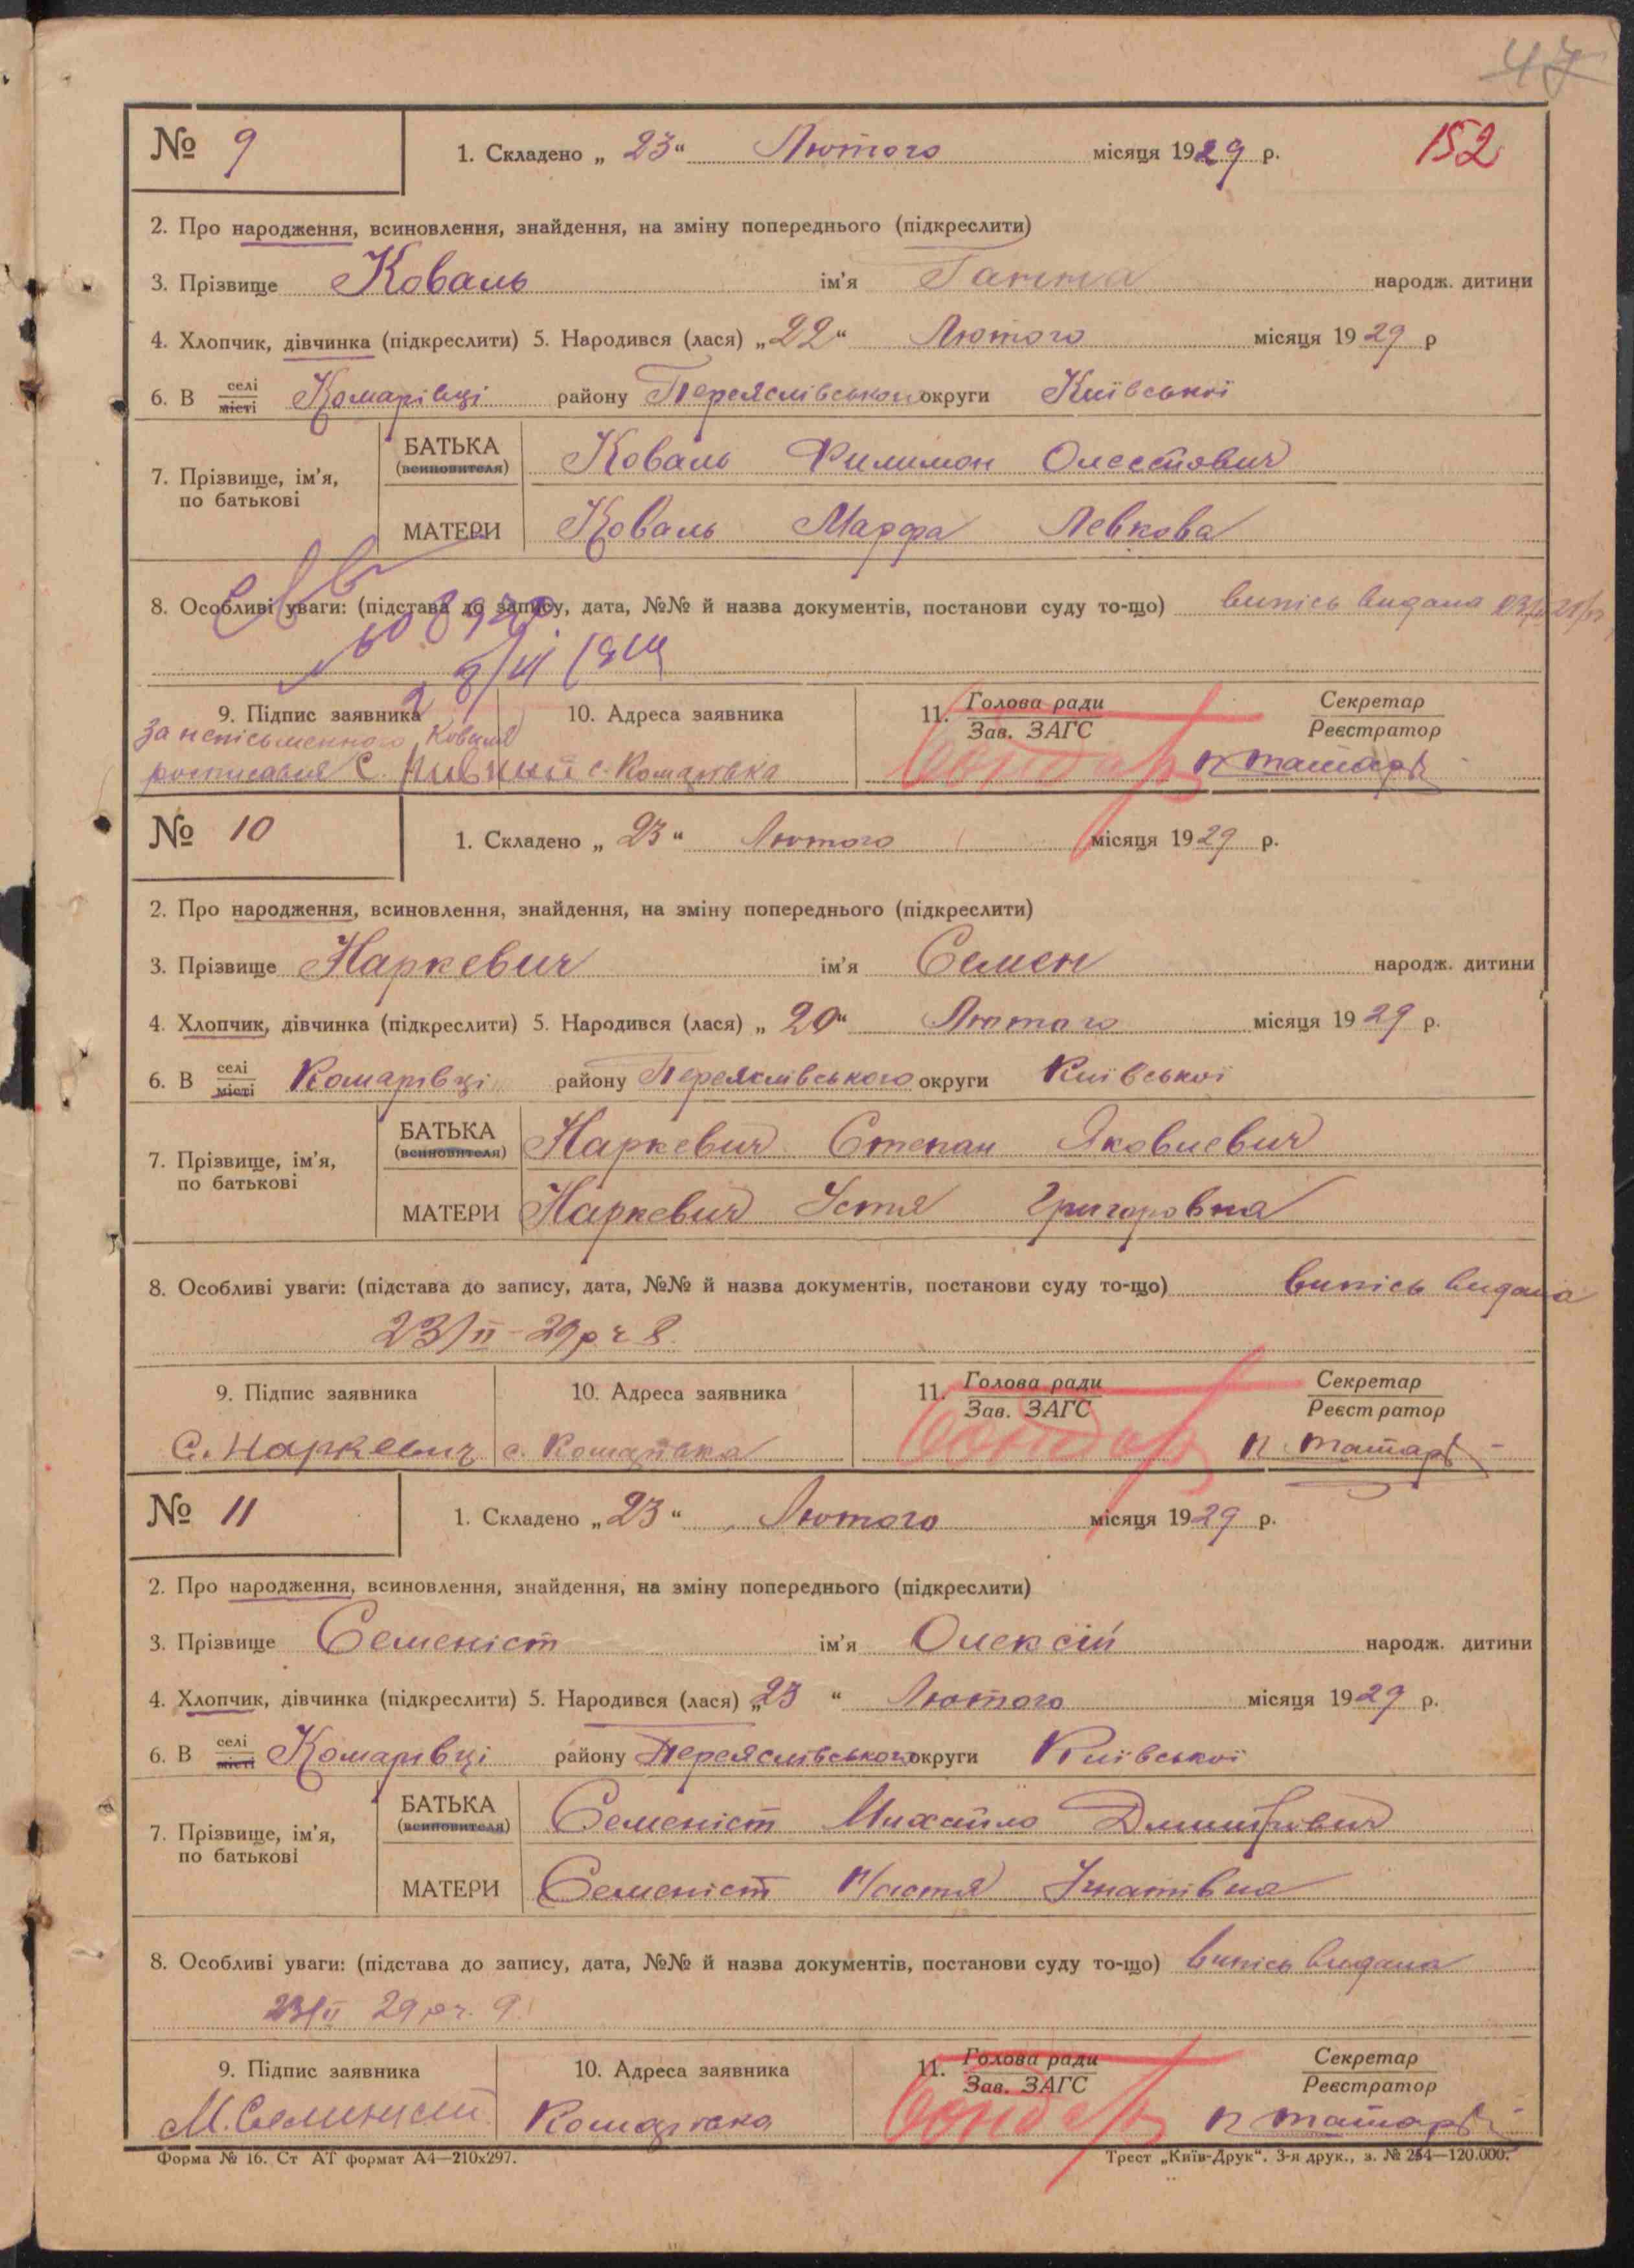 47
№ 9 1. Складено „ 23 “ Лютого місяця 1929 р. 152
2. Про народження, всиновлення, знайдення, на зміну попереднього (підкреслити)
3. Прізвище Коваль ім’я Ганна народж. дитини
4. Хлопчик, дівчинка (підкреслити) 5. Народився (лася) „ 22 “ Лютого місяця 1929 р
6. В селі місті Комарівці району Переяслівського округи Київської
7. Прізвище, ім’я, по батькові
БАТЬКА (всиновителя) Коваль Филимон
МАТЕРИ Коваль Марфа Левкова
8. Особливі уваги: (підстава до запису, дата, №№ й назва документів, постанови суду то-що) випісь видана
9. Підпис заявника 10. Адреса заявника 11. Голова ради Зав. ЗАГС Секретар Реєстратор
За неписьменного Коваля
росписався с. Комарівка Бондар
№ 10 1. Складено „ 23 “ Лютого місяця 1929 р.
2. Про народження, всиновлення, знайдення, на зміну попереднього (підкреслити)
3. Прізвище Наркевич ім’я Семен народж. дитини
4. Хлопчик, дівчинка (підкреслити) 5. Народився (лася) „ 20 “ Лютого місяця 1929 р.
6. В селі місті Комарівці району Переяслівського округи Київської
7. Прізвище, ім’я, по батькові
БАТЬКА (всиновителя) Наркевич Степан Яковлевич
МАТЕРИ Наркевич Устя Григоровна
8. Особливі уваги: (підстава до запису, дата, №№ й назва документів, постанови суду то-що) випісь видана
23/II-29 р ч 8.
9. Підпис заявника 10. Адреса заявника 11. Голова ради Зав. ЗАГС Секретар Реєстратор
С. Наркевич с. Комарівка Бондар
№ 11 1. Складено „ 23 “ Лютого місяця 1929 р.
2. Про народження, всиновлення, знайдення, на зміну попереднього (підкреслити)
3. Прізвище Семеніст ім’я Олексій народж. дитини
4. Хлопчик, дівчинка (підкреслити) 5. Народився (лася) „ 23 “ Лютого місяця 1929 р.
6. В селі місті Комарівці району Переяслівського округи Київської
7. Прізвище, ім’я, по батькові
БАТЬКА (всиновителя) Семеніст Михайло Дмитрович
МАТЕРИ Семеніст Настя Ігнатівна
8. Особливі уваги: (підстава до запису, дата, №№ й назва документів, постанови суду то-що) випісь видана
23/II 29 р ч. 9.
9. Підпис заявника 10. Адреса заявника 11. Голова ради Зав. ЗАГС Секретар Реєстратор
М. Семенист Комарівка Бондар
Форма № 16. Ст АТ формат А4—210х297. Трест „Київ-Друк“. 3-я друк., з. № 254—120.000.